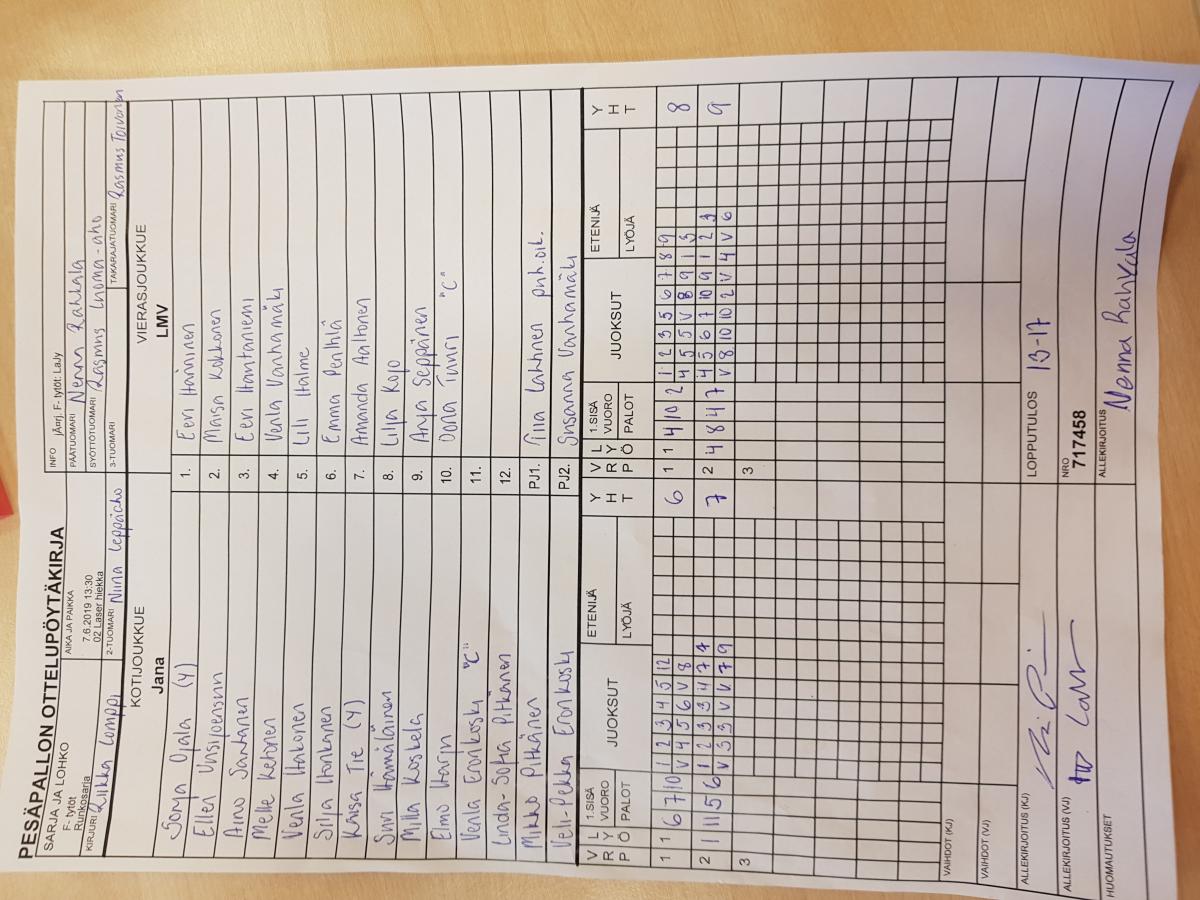 PESÄPALLON OTTELUPÖYTÄKIRJA
SARJA JA LOHKO
F- tytöt
Runkosarja
AIKA JA PAIKKA
7.6.2019 13:30
02 Laser hiekka
INFO jÄ¤rj. F- tytöt: LaJy
PÄÄTUOMARI Nenna Rahkala
SYÖTTÖTUOMARI Rasmus Luoma-aho
KIRJURI Riikka Lomppi
2-TUOMARI Niina Leppäaho
3-TUOMARI
TAKARAJATUOMARI Rasmus Toivonen
KOTIJOUKKUE
Jana
VIERASJOUKKUE
LMV
Sonja Ojala (Y) 1. Eeri Hänninen
Ellen Uusijoensuu 2. Maisa Kokkonen
Aino Santanen 3. Eeri Hantaniemi
Melle Ketonen 4. Venla Vanhamäki
Venla Hakonen 5. Lili Halme
Silja Honkanen 6. Emma Penthilä
Kaisa Tie (Y) 7. Amanda Aaltonen
Suvi Hämäläinen 8. Lilja Kojo
Milla Koskela 9. Anja Seppänen
Elmo Harin 10. Oona Tuuri "C"
Venla Eronkoski "C" 11.
Linda-Sofia Pitkänen 12.
Mikko Pitkänen PJ1. Tiia Lahtinen puh.oik.
Veli-Pekka Eronkoski PJ2. Susanna Vanhamäki
V R LY PÖ 1.SISÄ VUORO PALOT JUOKSUT ETENIJÄ LYÖJÄ YHT
V R LY PÖ 1.SISÄ VUORO PALOT JUOKSUT ETENIJÄ LYÖJÄ YHT
1 1 6 7 10 1 2 3 4 5 12 6 1 1 4 10 2 1 2 3 5 6 7 8 9 8
V 4 5 6 V 8 4 5 5 V 8 9 1 3
2 1 11 5 6 1 2 3 3 4 7 4 7 2 4 8 4 7 4 5 6 7 10 9 1 2 3 9
V 3 3 V V 7 9 V 8 10 10 2 V 4 V 6
3 3
VAIHDOT (KJ)
VAIHDOT (VJ)
ALLEKIRJOITUS (KJ)
LOPPUTULOS 13-17
ALLEKIRJOITUS (VJ)
NRO
717458
HUOMAUTUKSET
ALLEKIRJOITUS
Nenna Rahkala